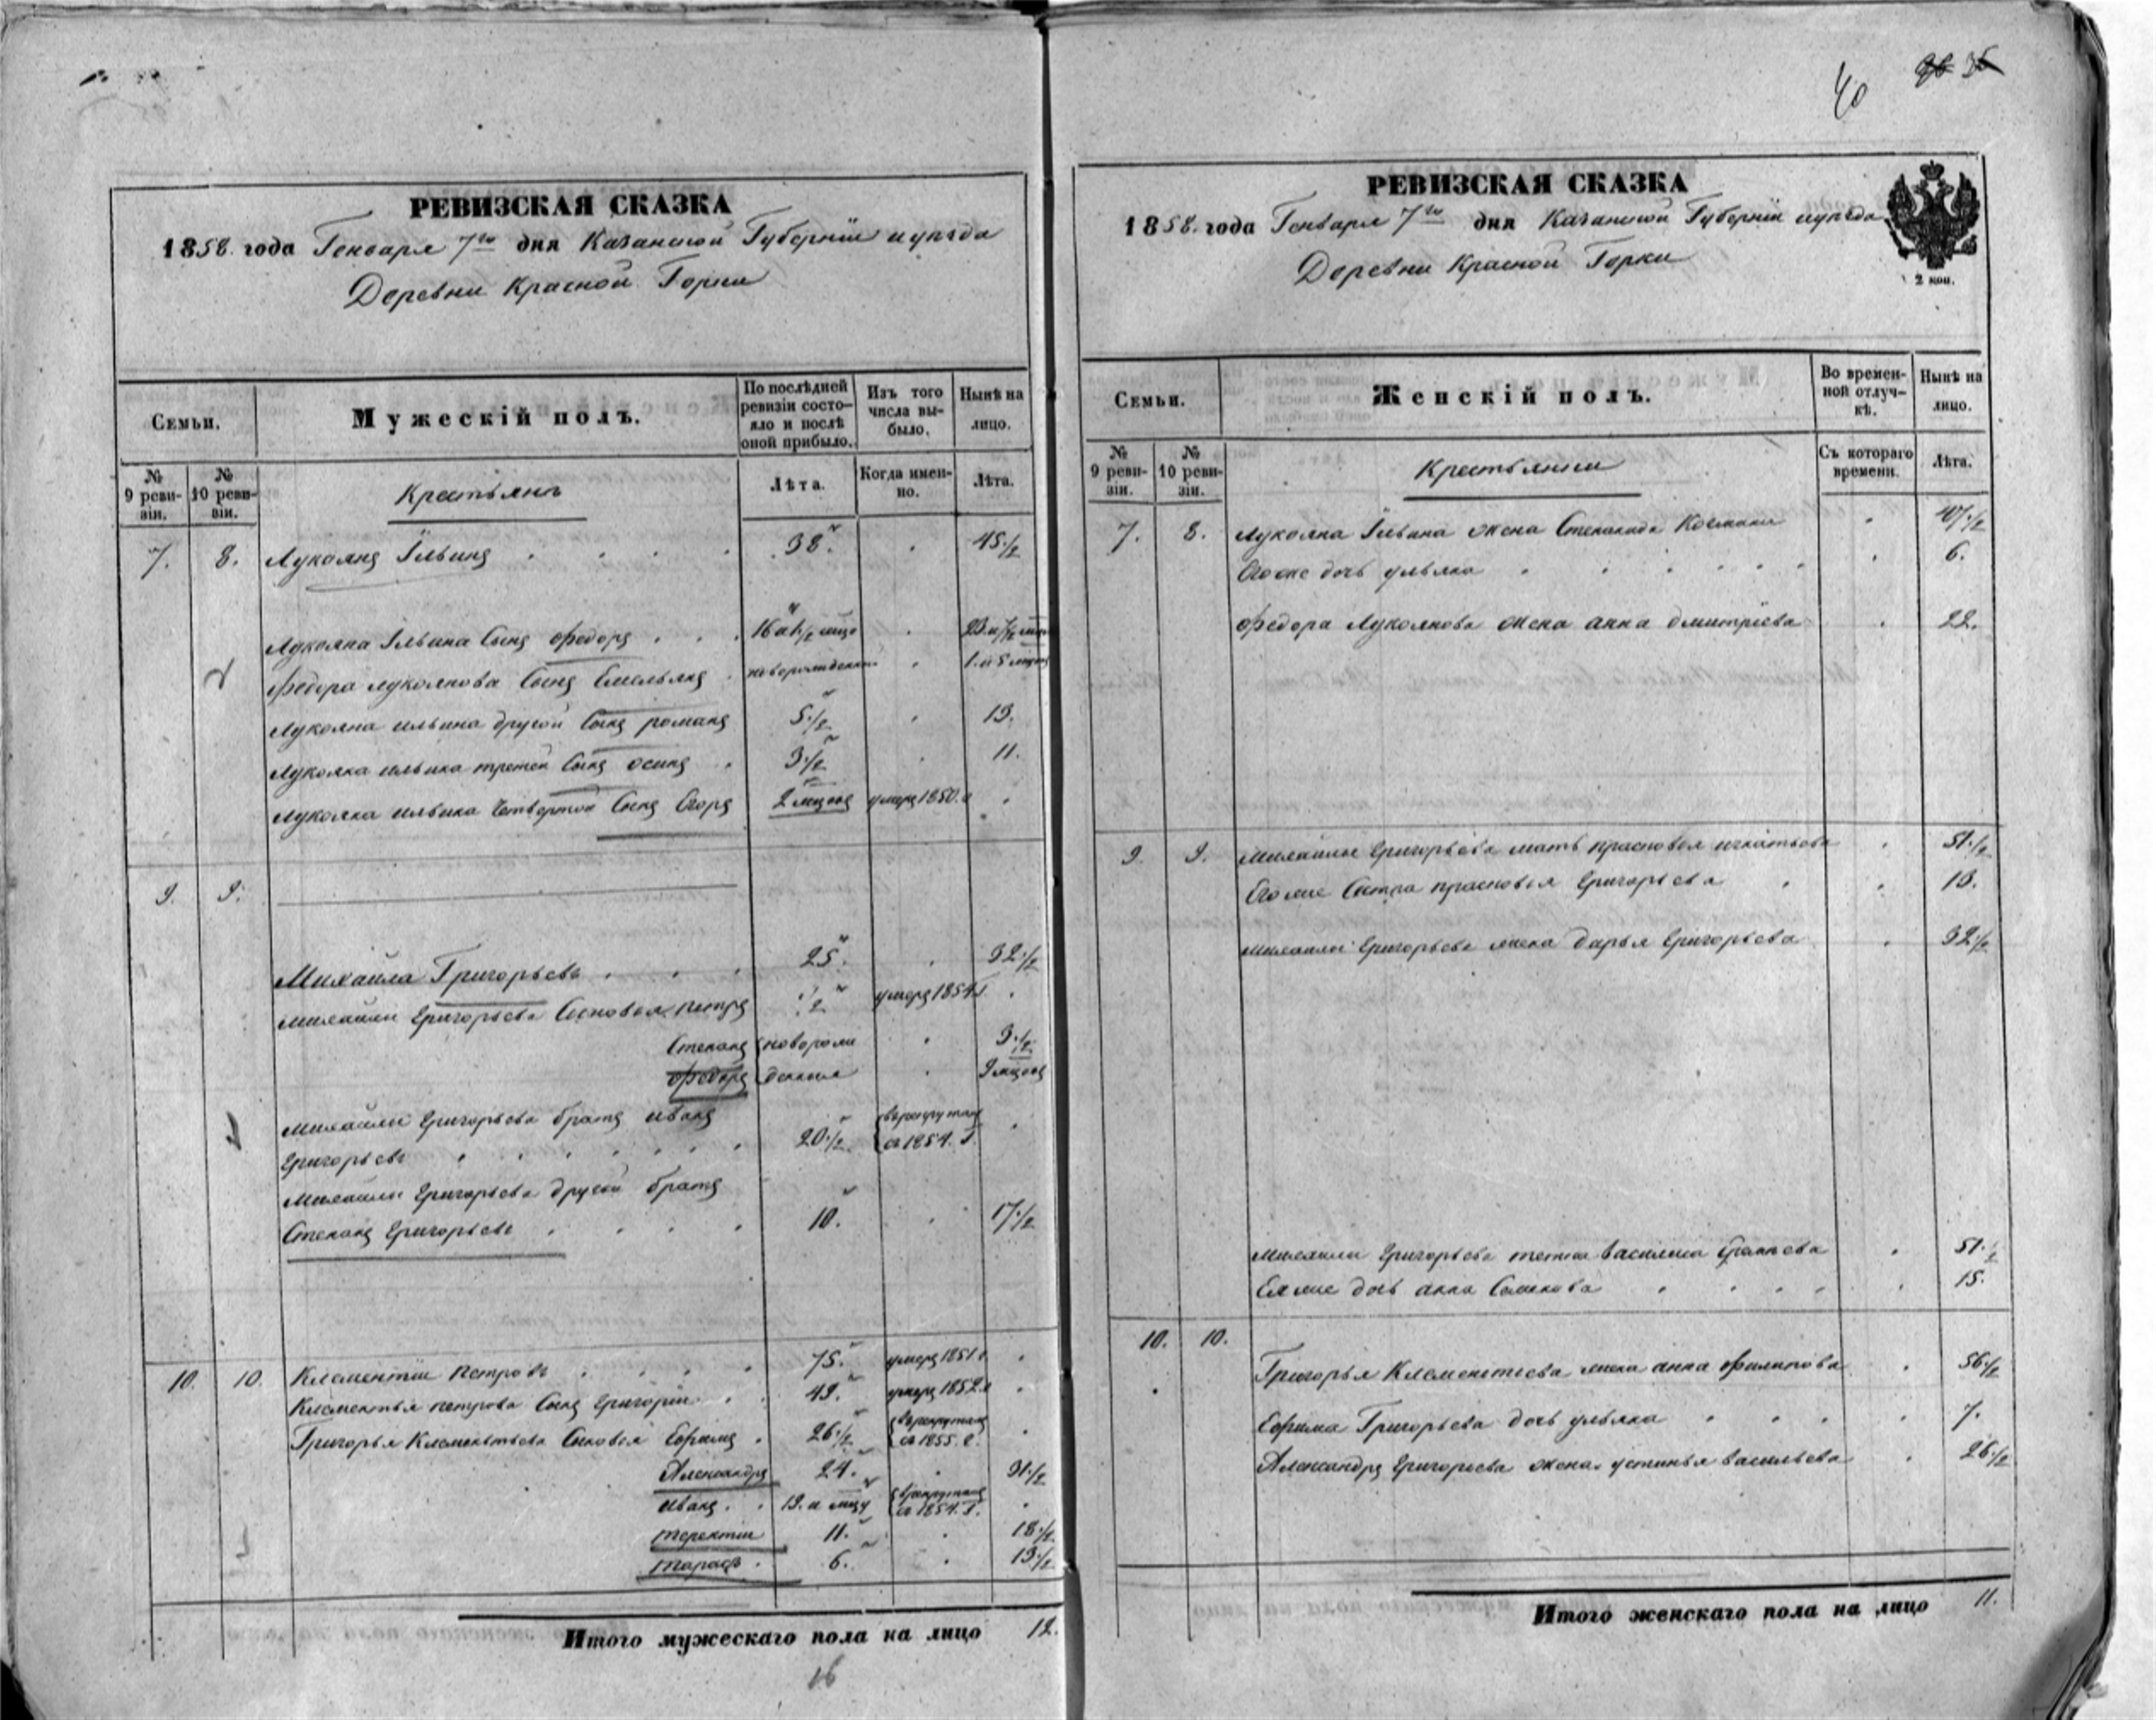 РЕВИЗСКАЯ СКАЗКА
1858. года Генваря 7го дня Казанской Губернiи и уѣзда
Деревни Красной Горки
Семьи.
Мужескiй полъ.
По послѣдней ревизiи состояло и послѣ оной прибыло.
Изъ того числа выбыло.
Нынѣ на лицо.
№ 9 ревизiи.
№ 10 ревизiи.
Крестьянъ
Лѣта.
Когда именно.
Лѣта.
7. 8. Лукоянъ Ильинъ 38. 45 1/2
Лукояна Ильина Сынъ Федоръ 16 и 1/2 мцо 23. и 7/2 мцо
Федора Лукоянова Сынъ Емельянъ новорожденный 1. и 5 мцовъ
Лукояна ильина другой Сынъ романъ 5 1/2 13.
Лукояна ильина третей Сынъ осипъ 3 1/2 11.
Лукояна ильина Четвертой Сынъ Егоръ 2 мцовъ умеръ 1850. г
9. 9.
Михайла Григорьевъ 25. 32 1/2
михайлы Григорьева Сыновья петръ 1/2 умеръ 1854 г.
Степанъ новорож 3 1/2
Федоръ денные 9 мцовъ
михайлы Григорьева братъ иванъ
Григорьевъ 20 1/2 в рекрутахъ съ 1854. г.
Михайлы Григорьева другой братъ
Степанъ Григорьевъ 10. 17 1/2
10. 10. Клементiй Петровъ 75. умеръ 1851 г.
Клементья петрова Сынъ Григорiй 49. умеръ 1852. г
Григорья Клементьева Сыновья Ефимъ 26 1/2 в рекрутахъ съ 1855. г.
Александръ 24. 31 1/2
иванъ 19. и мцу в рекрутахъ съ 1854. г.
терентiй 11. 18 1/2
тарасъ 6. 13 1/2
Итого мужескаго пола на лицо 12.
16
40 36
РЕВИЗСКАЯ СКАЗКА
1858. года Генваря 7го дня Казанской Губернiи и уѣзда
Деревни Красной Горки
2 коп.
Семьи.
Женскiй полъ.
Во временной отлучкѣ.
Нынѣ на лицо.
№ 9 ревизiи.
№ 10 ревизiи.
Крестьянки
Съ котораго времени.
Лѣта.
7. 8. Лукояна Ильина жена Степанида Козмина 47 1/2
Его же дочь ульяна 6.
Федора Лукоянова жена анна дмитрiева 22.
9. 9. Михайлы Григорьева мать прасковья игнатьева 51 1/2
Его же Сестра прасковья Григорьева 13.
михайлы Григорьева жена дарья Григорьева 32 1/2
михайлы Григорьева тетка василиса 51 1/2
Ея же дочь анна Семенова 15.
10. 10.
Григорья Клементьева жена анна Филипова 56 1/2
Ефима Григорьева дочь ульяна 7.
Александръ Григорьева жена устинья васильева 26 1/2
Итого женскаго пола на лицо 11.